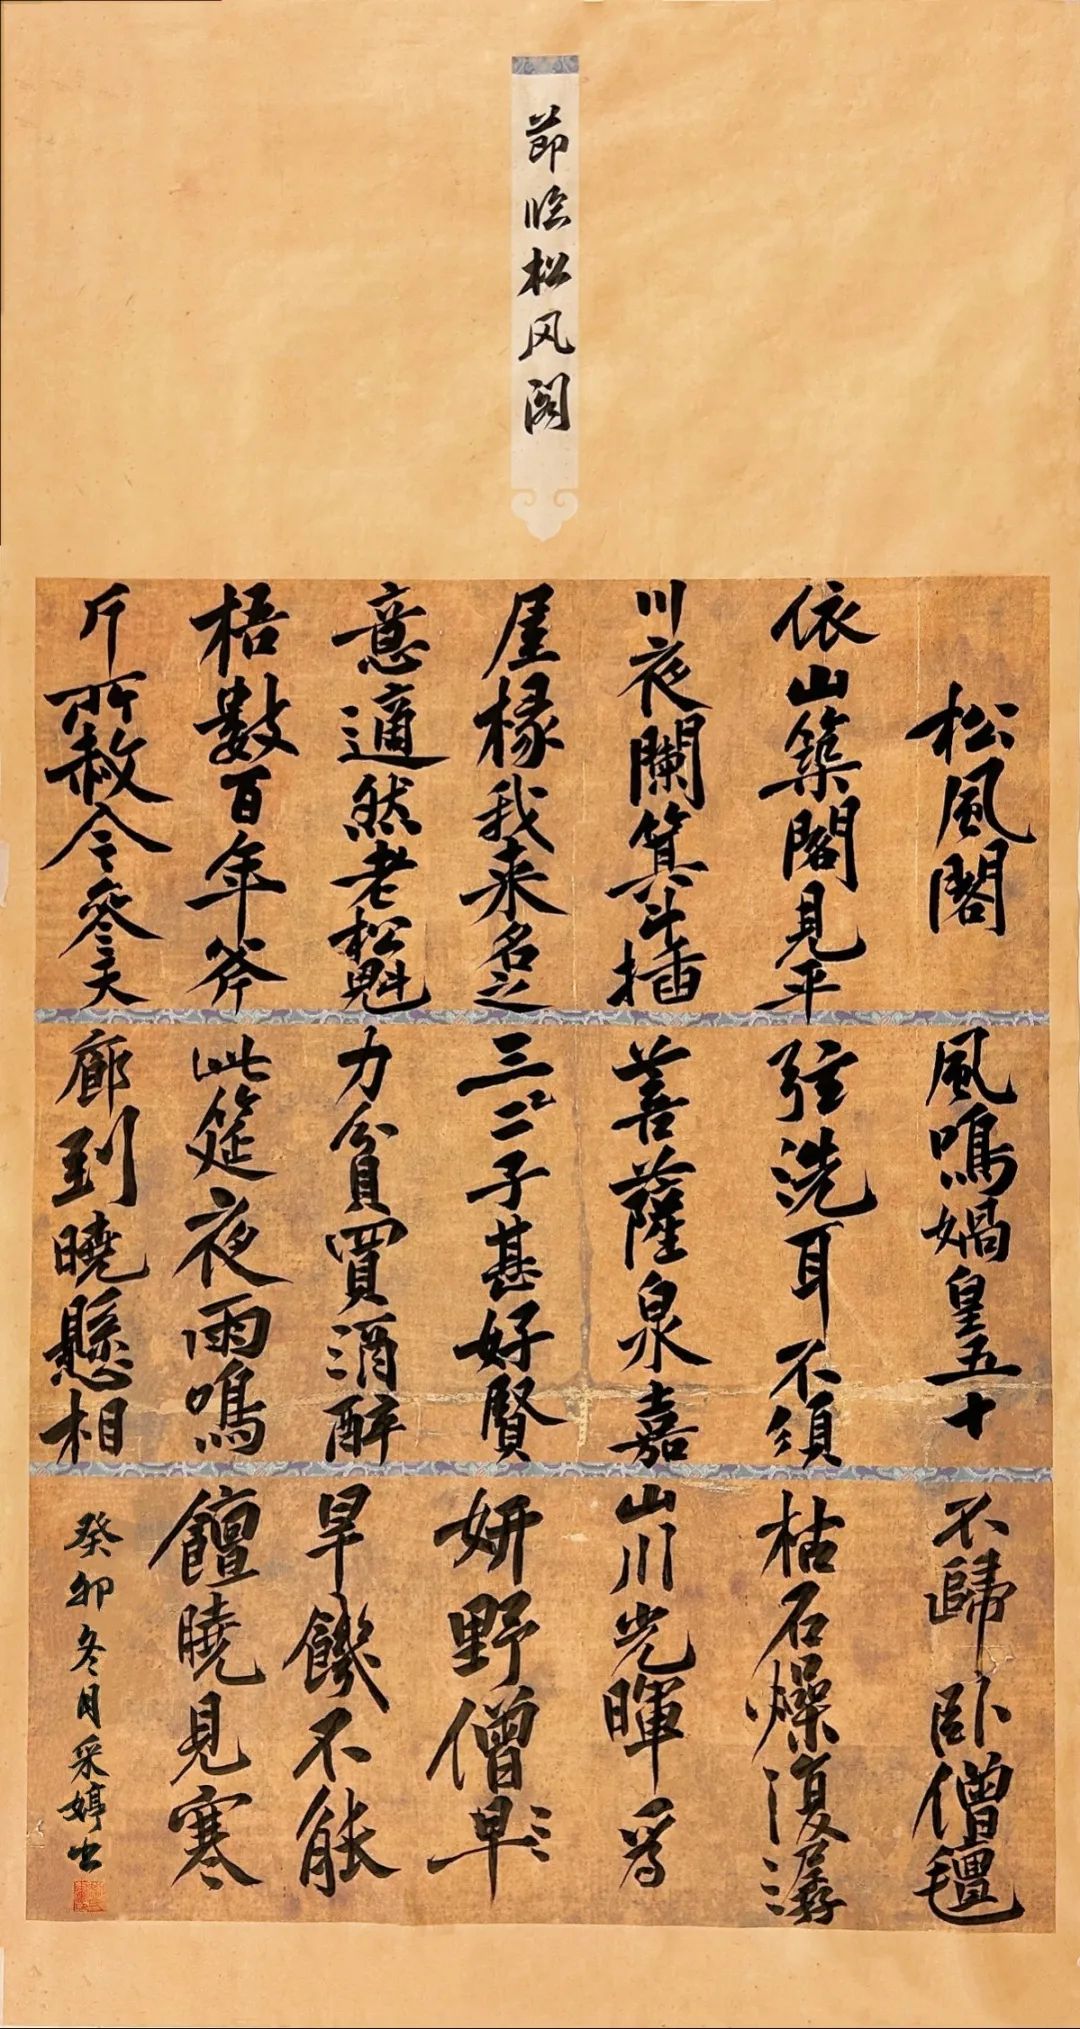 節临松风阁
松風閣
依山築閣見平
川夜闌箕斗插
屋椽我来名之
意適然老松魁
梧數百年斧
斤所赦今參天
風鳴媧皇五十
弦洗耳不須
菩薩泉嘉
三二子甚好賢
力貧買酒醉
此筵夜雨鳴
廊到曉懸相
不歸卧僧氈
枯石燥復潺
山川光暉為
妍野僧早
旱饑不能
饘曉見寒
癸卯冬月采婷书